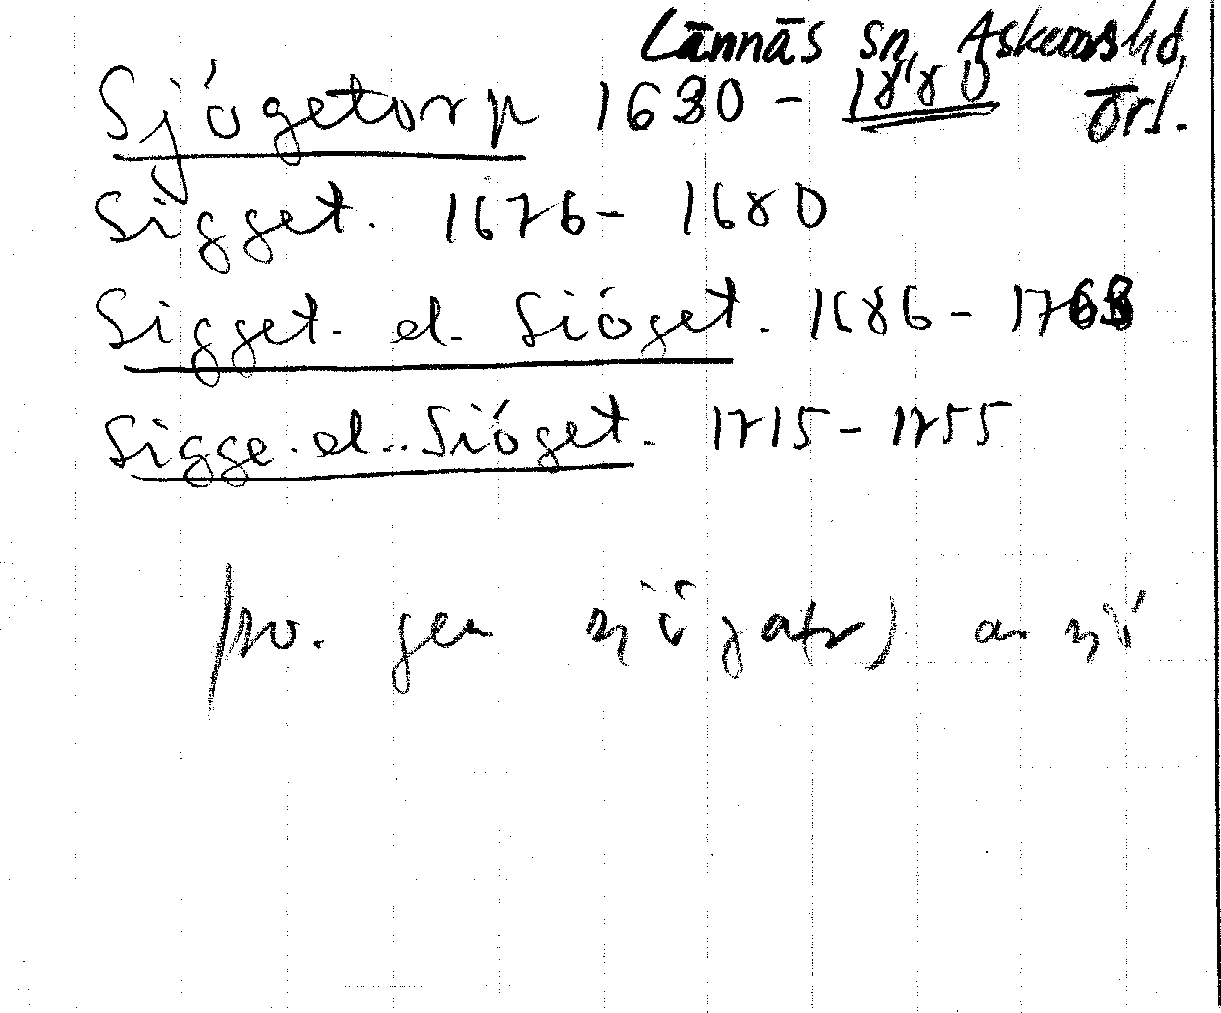 Lännäs sn, Askers hd,
Sjögetorp 1630 - 1880 Örl.
Sigget. 1676 - 1680
Sigget. el. Siöget. 1686 - 1768
Sigge. el. Siöget. 1715 - 1755
gen